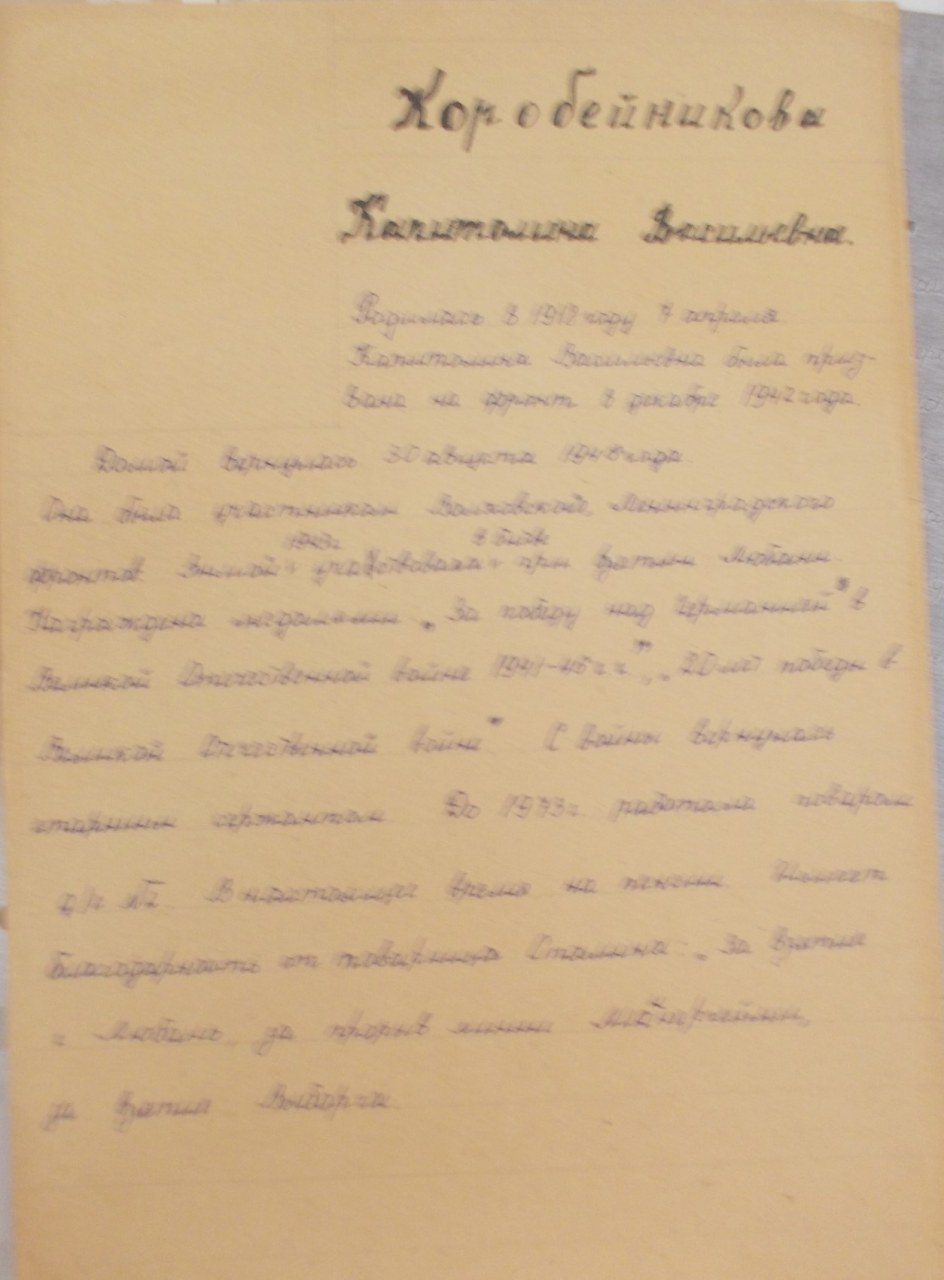 Коробейникова
Капитолина Васильевна.
Родилась в 1912 году 7 апреля
Капитолина Васильевна была приз-
вана на фронт в декабре 1942 года.
Домой вернулась 30 августа года.
Она была участником Волховской, Ленинградского
1943г в битве
фронтов. Зимой участвовала при взятии Любани.
Награждена медалями „За победу над Германией" в
Великой Отечественной войне 1941-45 г.г.", „20 лет победы в
Великой Отечественной войне" С войны вернулась
старшим сержантом До 1973г. работала поваром
В настоящее время на пенсии. Имеет
благодарность от товарища Сталина: „За взятие
г. Любань, за прорыв линии
за взятие Выборга.